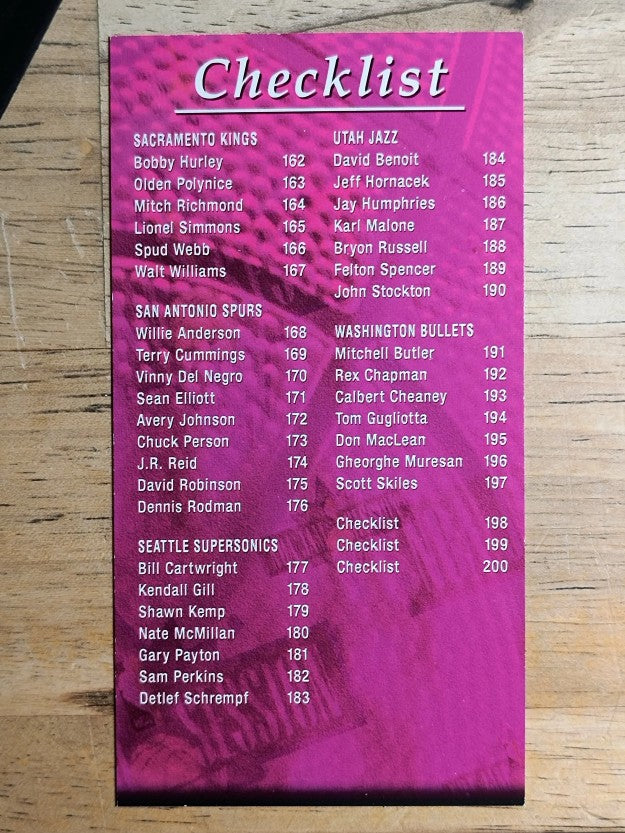 Checklist
SACRAMENTO KINGS
Bobby Hurley 162
Olden Polynice 163
Mitch Richmond 164
Lionel Simmons 165
Spud Webb 166
Walt Williams 167
SAN ANTONIO SPURS
Willie Anderson 168
Terry Cummings 169
Vinny Del Negro 170
Sean Elliott 171
Avery Johnson 172
Chuck Person 173
J.R. Reid 174
David Robinson 175
Dennis Rodman 176
SEATTLE SUPERSONICS
Bill Cartwright 177
Kendall Gill 178
Shawn Kemp 179
Nate McMillan 180
Gary Payton 181
Sam Perkins 182
Detlef Schrempf 183
UTAH JAZZ
David Benoit 184
Jeff Hornacek 185
Jay Humphries 186
Karl Malone 187
Bryon Russell 188
Felton Spencer 189
John Stockton 190
WASHINGTON BULLETS
Mitchell Butler 191
Rex Chapman 192
Calbert Cheaney 193
Tom Gugliotta 194
Don MacLean 195
Gheorghe Muresan 196
Scott Skiles 197
Checklist 198
Checklist 199
Checklist 200